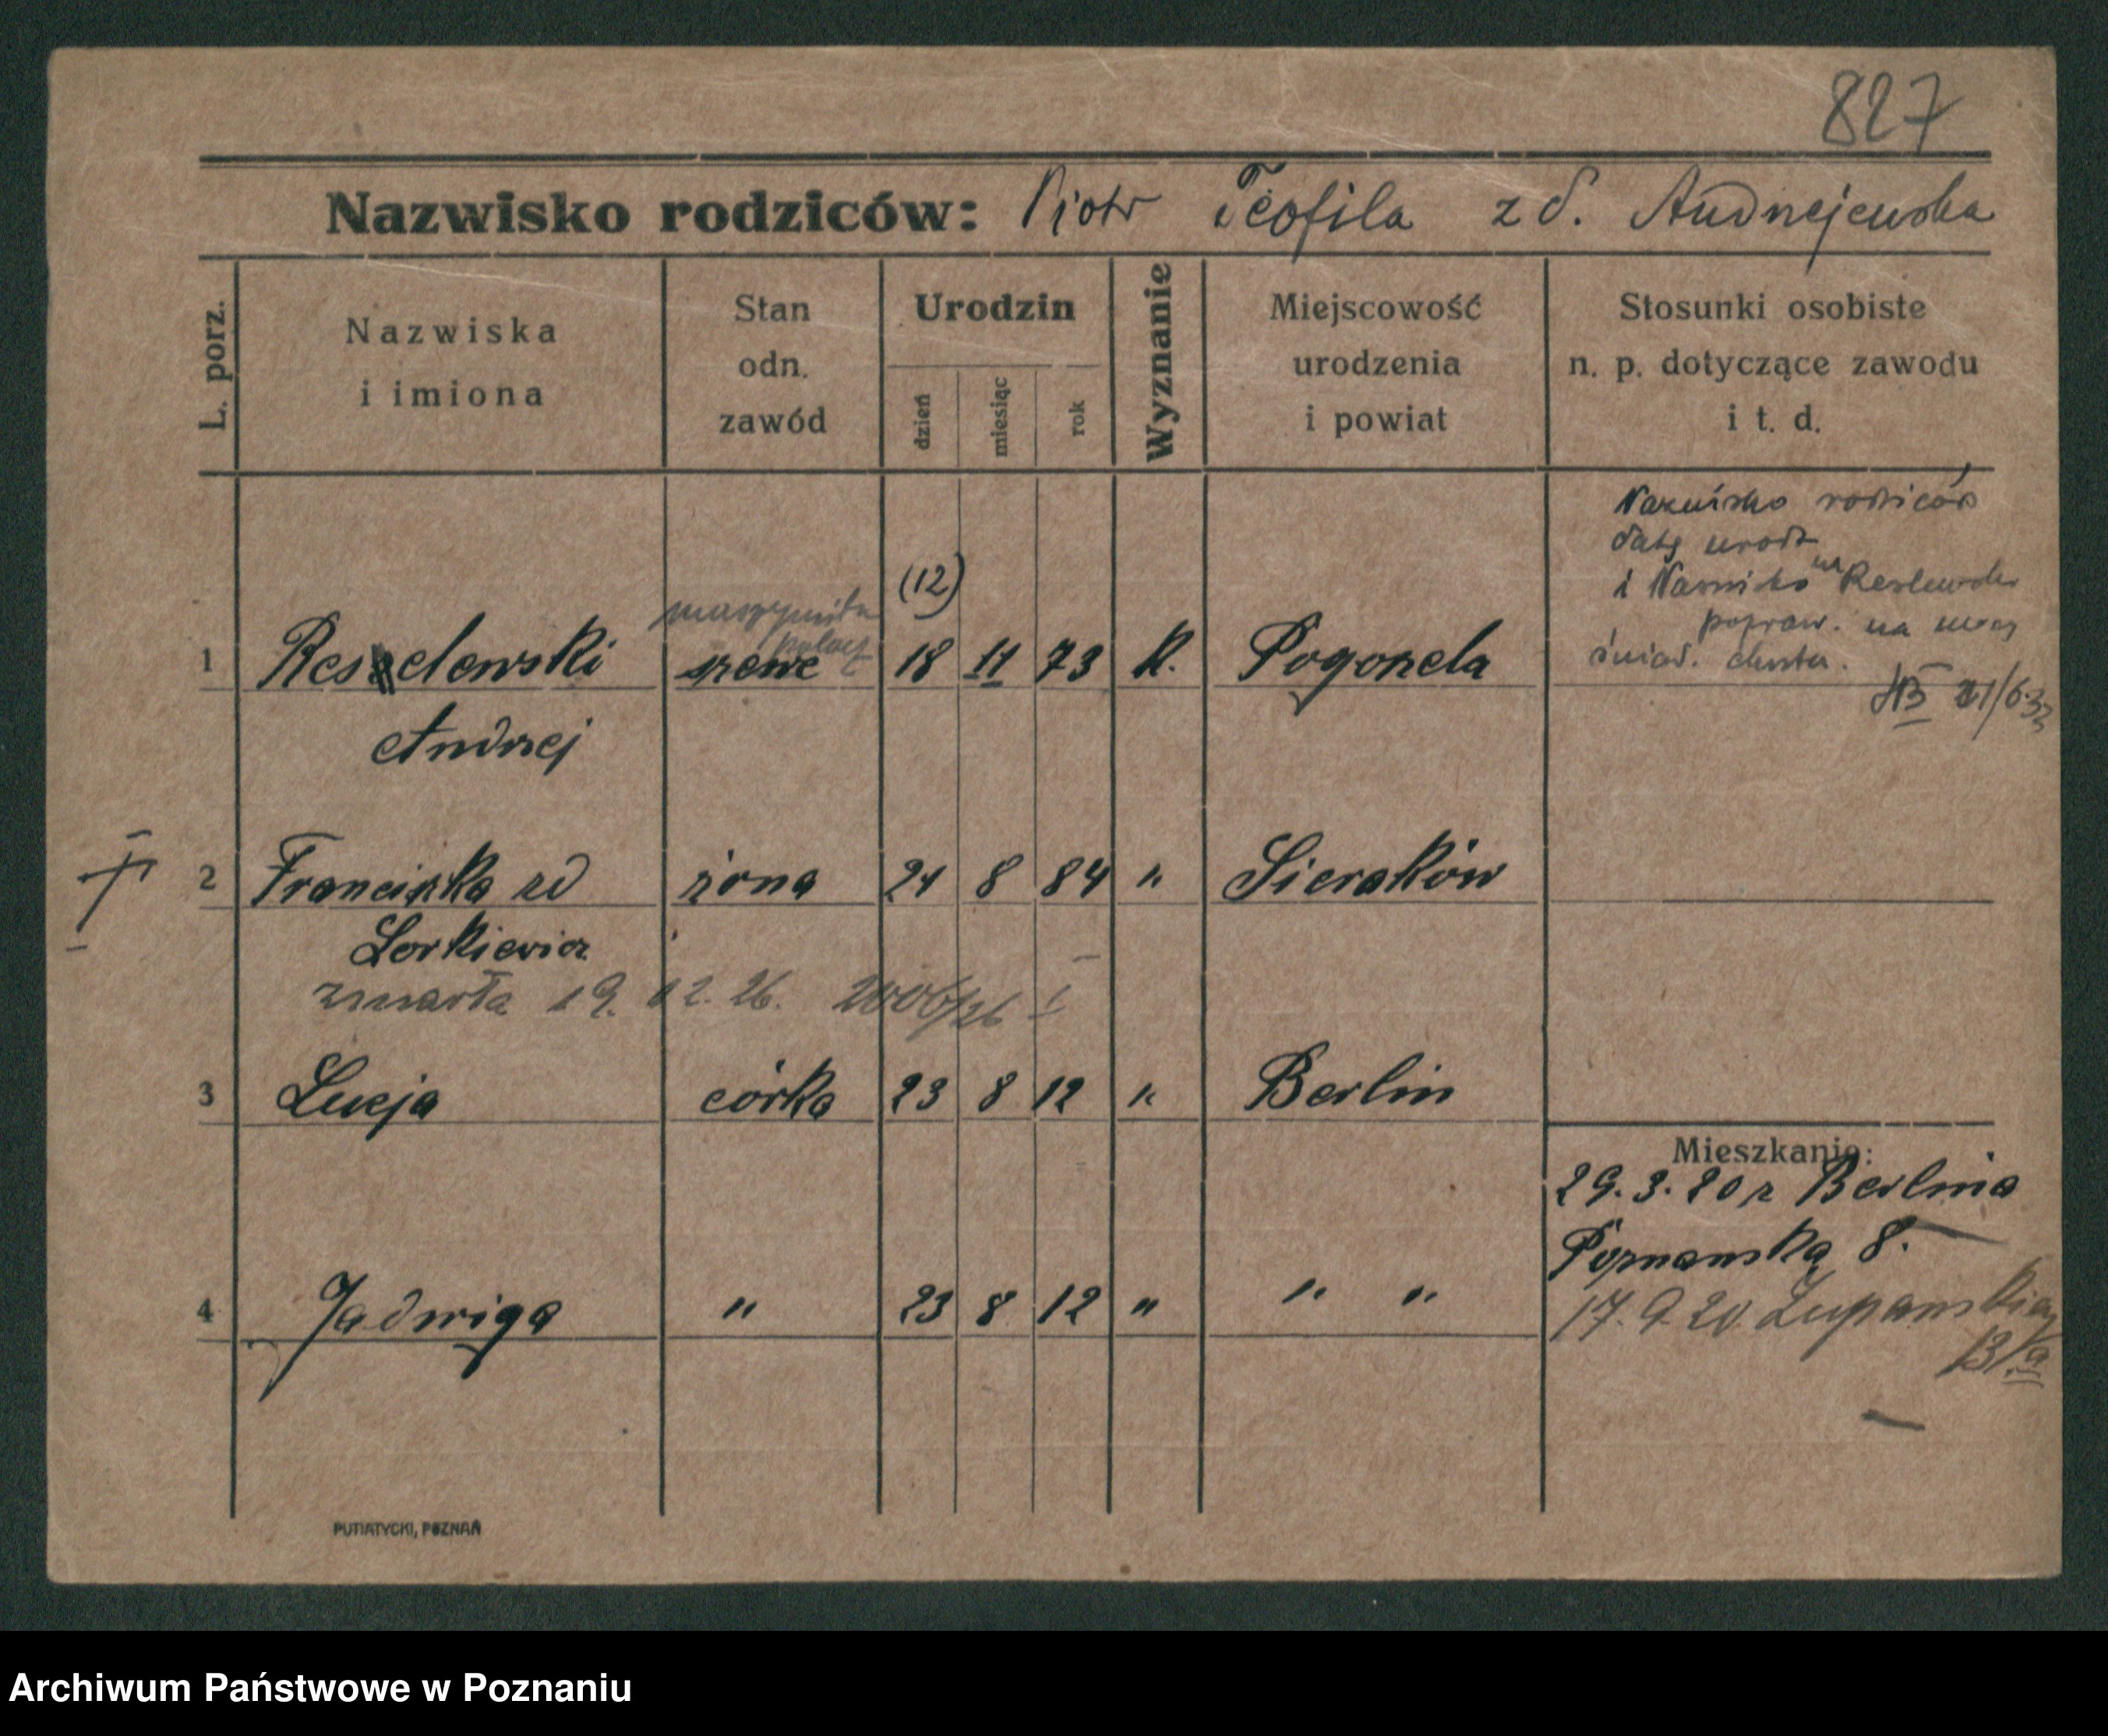 827
Nazwisko rodziców: Piotr i Teofila z d. Andrzejewska
L. porz.
Nazwiska
i imiona
Stan
odn.
zawód
Urodzin
dzień
miesiąc
rok
Wyznanie
Miejscowość
urodzenia
i powiat
Stosunki osobiste
n. p. dotyczące zawodu
i t. d.
Nazwisko rodziców
datę urodz
i Nazwisko na
popraw. na mocy
świad. chrztu.
(12)
1 Reszelewski szewc 18 11 73 k. Pogorzela
Andrzej
2 Franciszka zd żona 21 8 84 " Sieraków
Lorkiewicz
zmarła 19. 12. 26.
3 Łucja córka 23 8 12 " Berlin
Mieszkanie:
29. 3. 20 z Berlina
Poznańska 8.
4 Jadwiga " 23 8 12 " " "
17. 9. 20
13/a
PUTIATYCKI, POZNAŃ
Archiwum Państwowe w Poznaniu